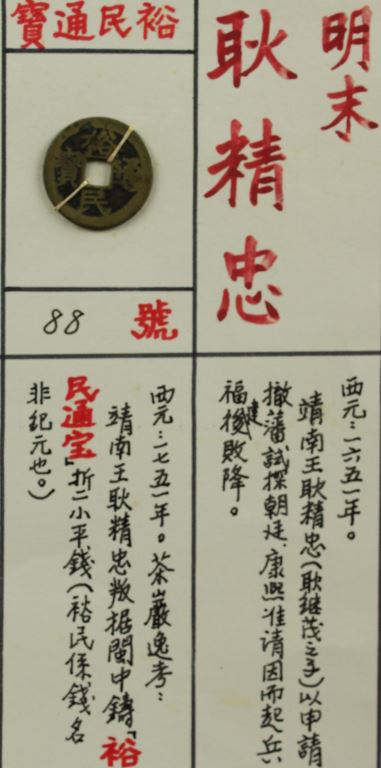 明末
耿精忠
西元：一六五一年。
靖南王耿精忠(耿继茂之子)以申請
撤藩試探朝廷，康熙准请因而起兵
福建後敗降。
裕民通寶
裕民通寶
號 88
西元：一七五一年。茶巖逸考：
靖南王耿精忠叛据閩中鑄「裕
民通宝」折二小平錢(裕民係錢名
非紀元也。)